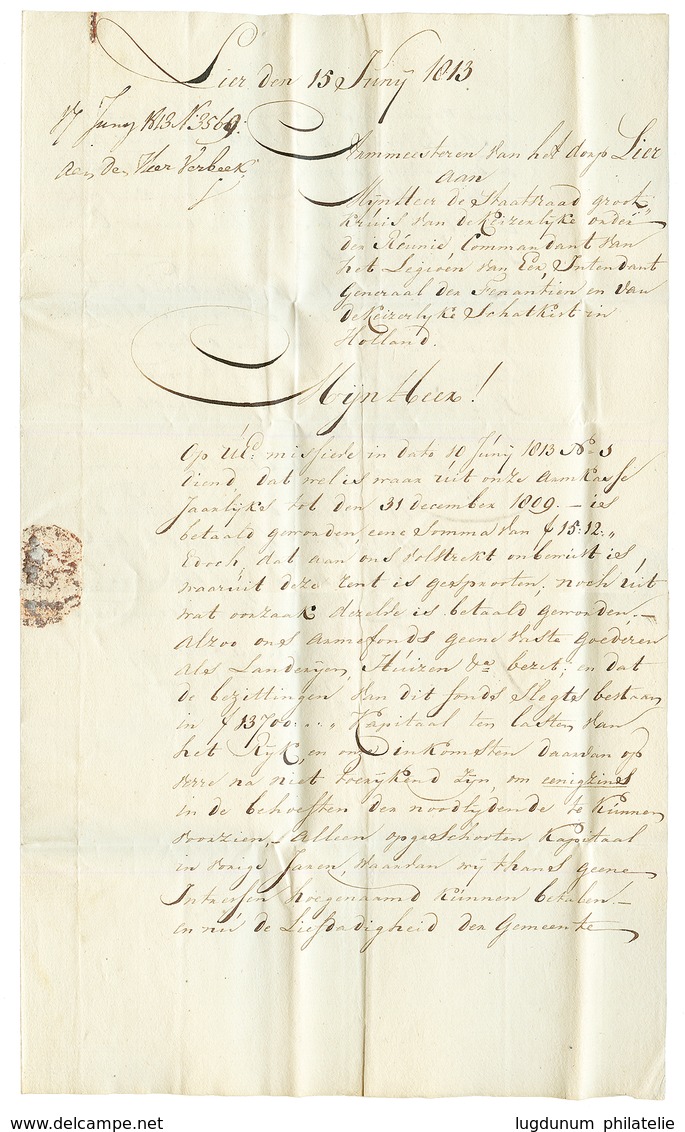 Lier den 15 Junij 1813.
17 Juny 1813 N 3569.
aen den Heer Verbeek.
Armmeesteren van het dorp Lier
aan
Mijn Heer de Staatsraad groot
kruis van de Keizerlyke order
der Réunie, Commandant van
het Legioen van Eer, Intendant
Generaal der Finantien en van
de Keizerlyke Schatkist in
Holland.
Mijn Heer!
Op UEd: missieve in dato 10 Junij 1813 No 3
diend dat wel is waar uit onze Armkasse
Jaarlyks tot den 31 december 1809. – is
betaald geworden, eene Somma van ƒ 15:12:„
Edoch, dat aan ons volstrekt onbewust is,
waaruit deze rent is gesprooten, noch uit
wat oorzaak dezelve is betaald geworden. –
alzoo ons armefonds geene vaste goederen
als Landerijen, Huizen &a bezit; en dat
de bezittingen van dit fonds slegts bestaan
in ƒ 13700: „ „ Kapitaal ten lasten van
het Ryk, en onze inkomsten daarvan op
verre na niet toerykend zyn, om eenigzins
in de behoeften der noodlydende te kunnen
voorzien, – alleen opgeschooten Kapitaal
in vorige Jaren, waarvan wy thans geene
Intressen hoegenaamd kunnen betalen. –
en nu de Liefdadigheid der Gemeente
www.delcampe.net
lugdunum philatelie